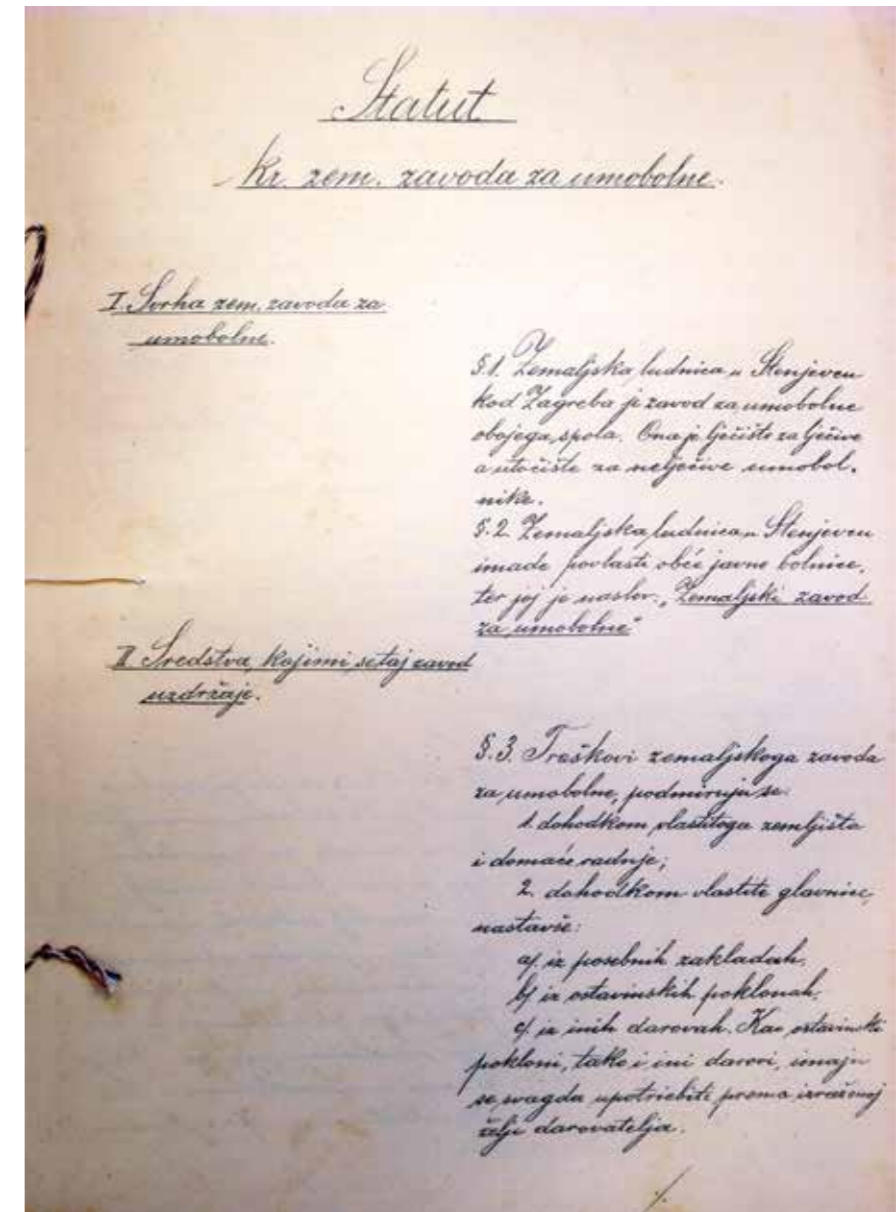 Statut
kr. zem. zavoda za umobolne.
I. Svrha zem. zavoda za
umobolne.
§.1. Zemaljska ludnica u Stenjevcu
kod Zagreba je zavod za umobolne
obojega spola. Ona je lječište za lječive
a utočište za nelječive umobol-
nike.
§.2. Zemaljska ludnica u Stenjevcu
imade povlasti obće javne bolnice,
ter joj je naslov: „Zemaljski zavod
za umobolne“
II Sredstva, kojimi se taj zavod
uzdržaje.
§.3. Troškovi zemaljskoga zavoda
za umobolne, podmiruju se:
1. dohodkom vlastitoga zemljišta
i domaće radnje;
2. dohodkom vlastite glavnice,
nastavše:
a/. iz posebnih zakladah,
b/ iz ostavinskih poklonah,
c/. iz inih darovah. Kao ostavinski
pokloni, tako i ini darovi, imaju
se svagda upotriebiti prema izraženoj
želji darovatelja.
./.